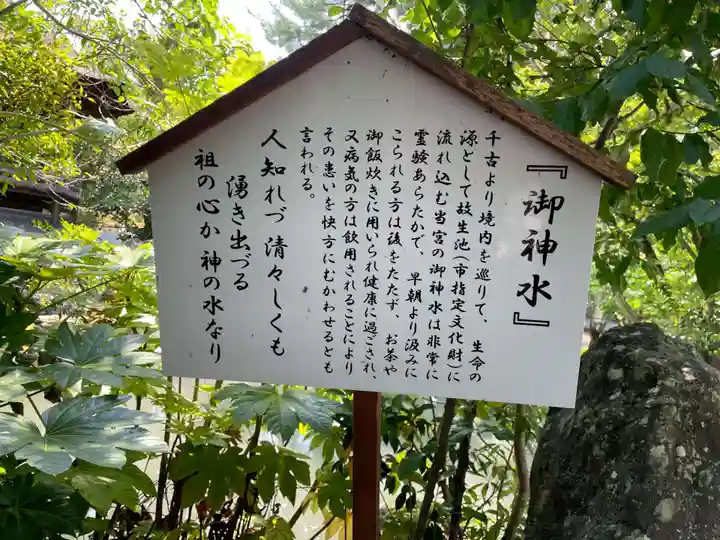 『御神水』
千古より境内を巡りて、生命の
源として故生池(市指定文化財)に
流れ込む当宮の御神水は非常に
霊験あらたかで、早朝より汲みに
こられる方は後をたたず、お茶や
御飯炊きに用いられ健康に過ごされ、
又病気の方は飲用されることにより
その患いを快方にむかわせるとも
言われる。
人知れづ清々しくも
湧き出づる
祖の心か神の水なり